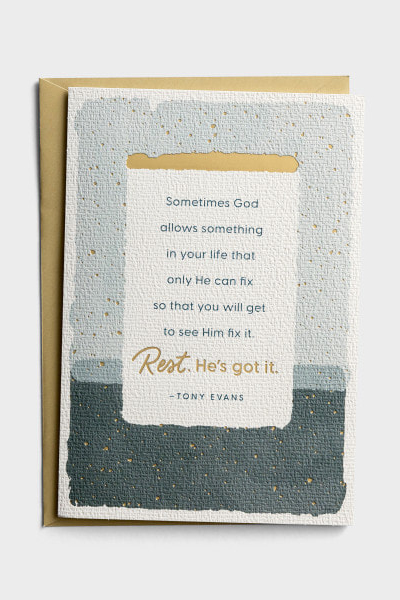 Sometimes God
allows something
in your life that
only He can fix
so that you will get
to see Him fix it.
Rest. He's got it.
–TONY EVANS